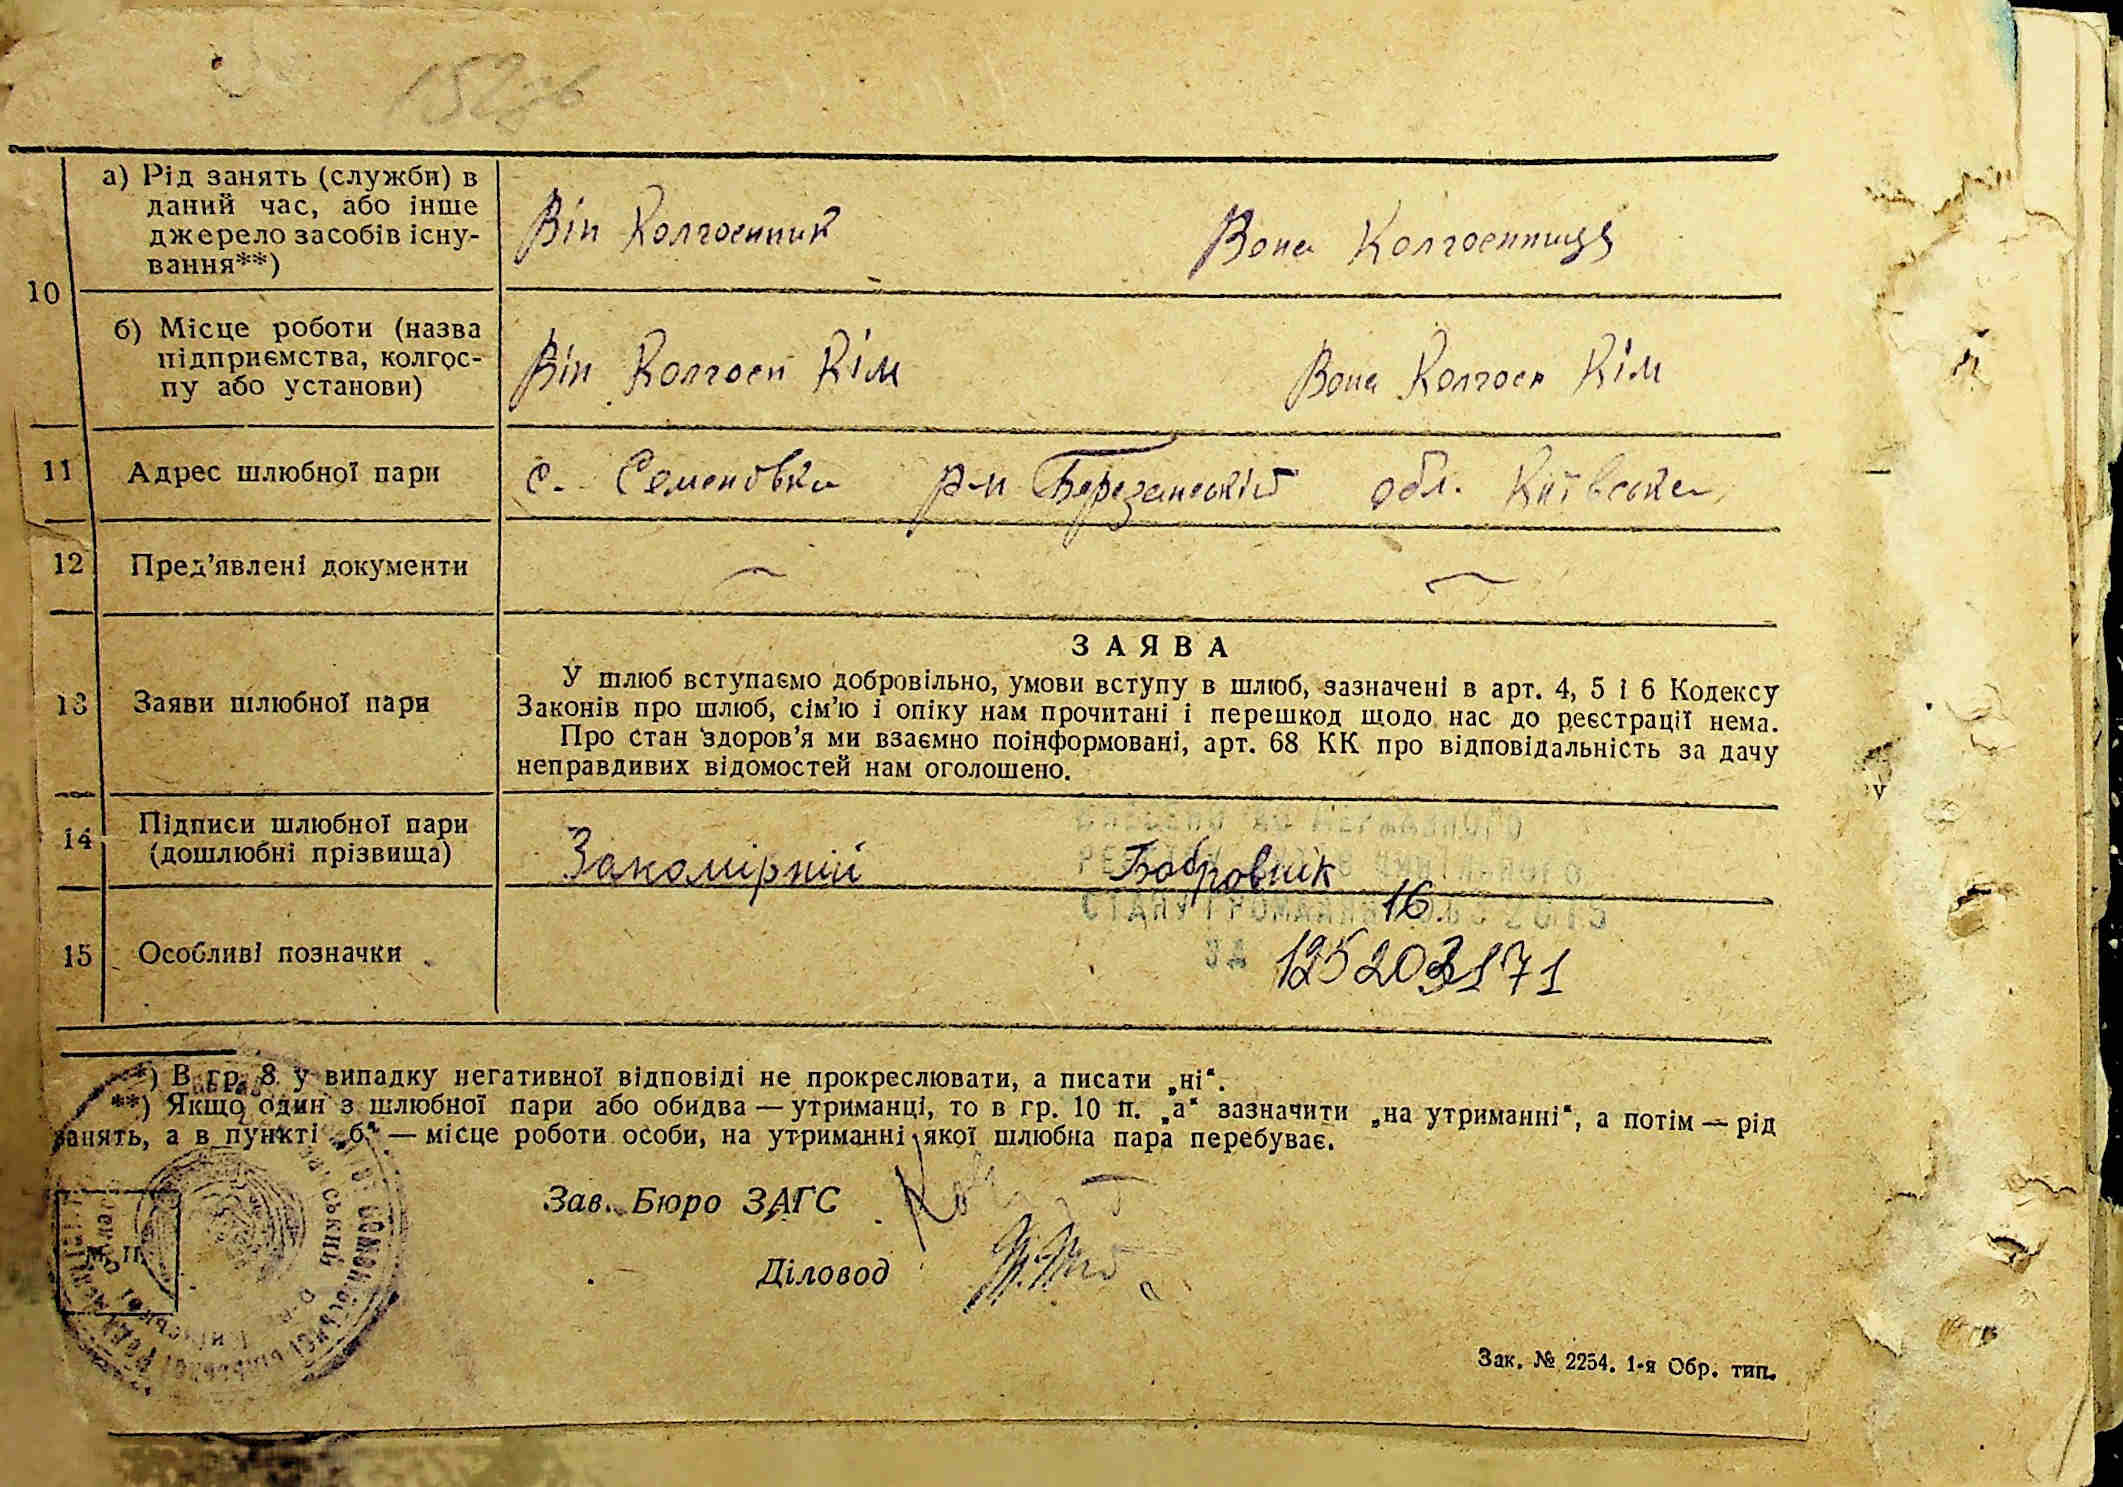 152зв
а) Рід занять (служби) в
даний час, або інше
джерело засобів існу-
вання**)
Він Колгоспник Вона Колгоспниця
10
б) Місце роботи (назва
підприємства, колгос-
пу або установи)
Він Колгосп Кім Вона Колгосп Кім
11 Адрес шлюбної пари с. Семеновка р-н Березанський обл. Київська
12 Пред’явлені документи — —
ЗАЯВА
13 Заяви шлюбної пари
У шлюб вступаємо добровільно, умови вступу в шлюб, зазначені в арт. 4, 5 і 6 Кодексу
Законів про шлюб, сім’ю і опіку нам прочитані і перешкод щодо нас до реєстрації нема.
Про стан здоров’я ми взаємно поінформовані, арт. 68 КК про відповідальність за дачу
неправдивих відомостей нам оголошено.
14 Підписи шлюбної пари
(дошлюбні прізвища)
Закомірній Бобровнік
16
15 Особливі позначки
*) В гр. 8 у випадку негативної відповіді не прокреслювати, а писати „ні“.
**) Якщо один з шлюбної пари або обидва — утриманці, то в гр. 10 п. „а“ зазначити „на утриманні“, а потім — рід
занять, а в пункті „б“ — місце роботи особи, на утриманні якої шлюбна пара перебуває.
Зав. Бюро ЗАГС
М. П.
Діловод
Зак. № 2254. 1-я Обр. тип.